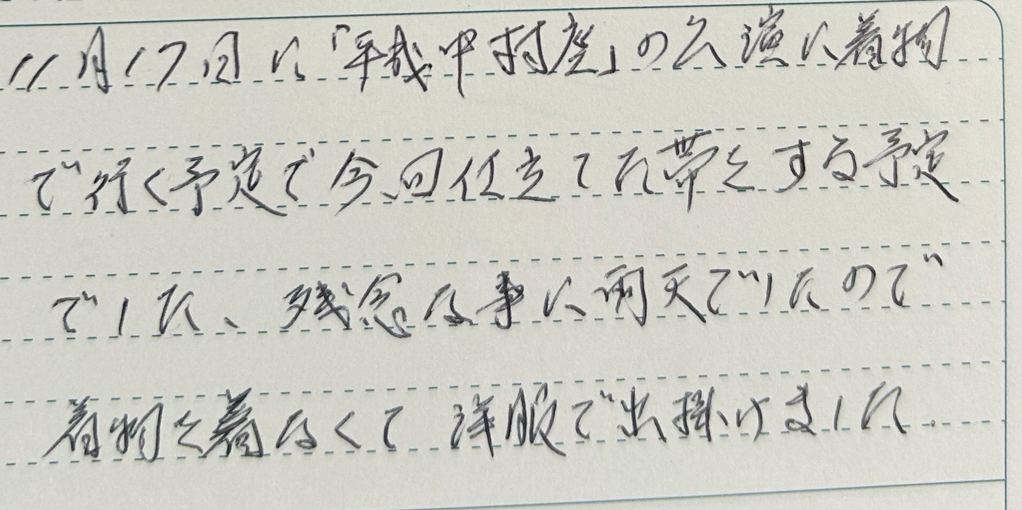 11月17日に「平成中村座」の公演に着物
で行く予定で今回仕立てた帯をする予定
でした、残念な事に雨天でしたので
着物を着なくて洋服で出掛けました.